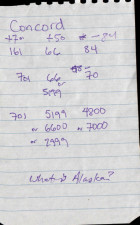 Concord
+70 +50 -24
161 66 84
701 66 70
5199
701 5199 4800
or 6600 or 7000
or 2999
What is Alaska?